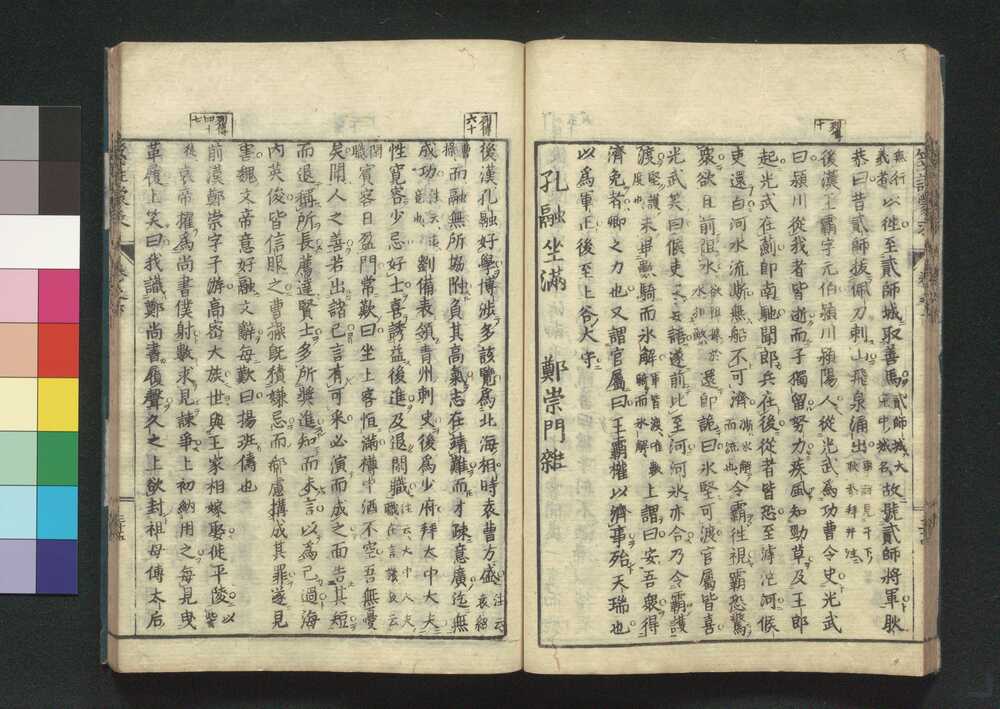 列十
無行義者以往至貳師城取善馬貳師城大宛中城名故號貳師將軍耿
恭曰昔貳師拔佩刀刺山飛泉涌出
後漢王霸字元伯潁川潁陽人從光武爲功曹令史光武
曰潁川從我者皆逝而子獨留努力疾風知勁草及王郎
起光武在薊卽南馳聞郎兵在後從者皆恐至滹沱河候
吏還白河水流澌無船不可濟澌水解而流也令霸往視霸恐驚
衆欲且前阻水還卽詭曰氷堅可渡官屬皆喜
光武笑曰候吏妄語遂前比至河河氷亦合乃令霸護
渡未畢數騎而氷解上謂曰安吾衆得
濟免者卿之力也又謂官屬曰王霸權以濟事殆天瑞也
以爲軍正後至上谷大守
孔融坐滿　鄭崇門雜
列傳六十
後漢孔融好學博渉多該覽爲北海相時袁曹方盛注云袁紹曹操
而融無所協附負其高氣志在靖難而才疎意廣迄無
成功劉備表領青州刺史後爲少府拜太中大夫
性寬容少忌好士喜誘益後進及退閑職
賓客日盈門常歎曰坐上客恒滿樽中酒不空吾無憂
矣聞人之善若出諸己言有可采必演而成之面告其短
而退稱所長薦達賢士多所奬進知而未言以爲己過海
内英俊皆信服之曹操既積嫌忌而郗慮搆成其罪遂見
害魏文帝意好融文辭每歎曰揚班儔也
列傳四十七
前漢鄭崇字子游高密大族世與王家相嫁娶徙平陵以
哀帝擢爲尚書僕射數求見諫爭上初納用之每見曳
革履上笑曰我識鄭尚書履聲久之上欲封祖母傅太后